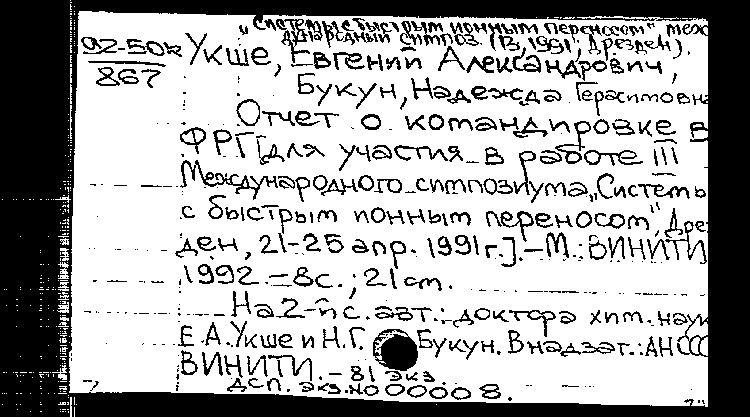 „Системы с быстрым ионным переносом" меж
дународный симпоз. (В, 1991; Дрезден).
92-50к
867
Укше, Евгений Александрович,
Букун, Надежда Герасимовна
Отчет о командировке в
ФРГ [для участия в работе III
Международного симпозиума „Системы
с быстрым ионным переносом", Дрез
ден, 21-25 апр. 1991 г.]. - М.: ВИНИТИ
1992. - 8 с.; 21 см.
На 2-й с. авт.: доктора хим. наук
Е.А. Укше и Н.Г. Букун. В надзаг.: АН СССР
ВИНИТИ. - 81 экз.
ДСП. Экз. № 00008.